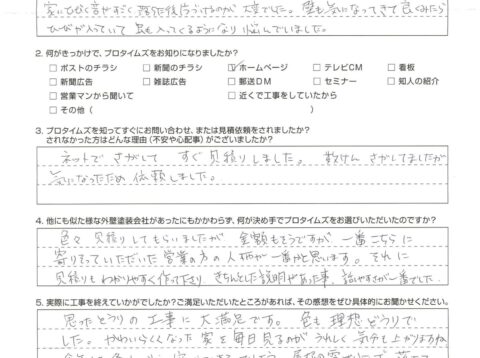 家にひびく音やすごく 踏んだ後片づけるのが 大変でした。壁も気になってきて良くみたら
ひびが入っていて 虫も入ってくるようになり悩んでいました。
2. 何がきっかけで、プロタイムズをお知りになりましたか?
□ ポストのチラシ □ 新聞のチラシ ☑ ホームページ □ テレビCM □ 看板
□ 新聞広告 □ 雑誌広告 □ 郵送DM □ セミナー □ 知人の紹介
□ 営業マンから聞いて □ 近くで工事をしていたから
□ その他 (
3. プロタイムズを知ってすぐにお問い合わせ、または見積依頼をされましたか?
されなかった方はどんな理由(不安や心配事)がございましたか?
ネットで さがして すぐ見積りしました。 数けん さがしてましたが
気になったため 依頼しました。
4. 他にも似た様な外壁塗装会社があったにもかかわらず、何が決め手でプロタイムズをお選びいただいたのですか?
色々 見積りしてもらいましたが 金額もそうですが、一番こちらに
寄りそっていただいた営業の方の人柄が一番かと思います。それに
見積りもわかりやすく作って下さり きちんとした説明があった事、話しやすさが一番でした。
5. 実際に工事を終えていかがでしたか?ご満足いただいたところがあれば、その感想をぜひ具体的にお聞かせください。
思ったとうりの工事に 大満足です。 色も理想どうりで
した。 かわいらくなった 家を毎日見るのが うれしく 気分も上がりますね